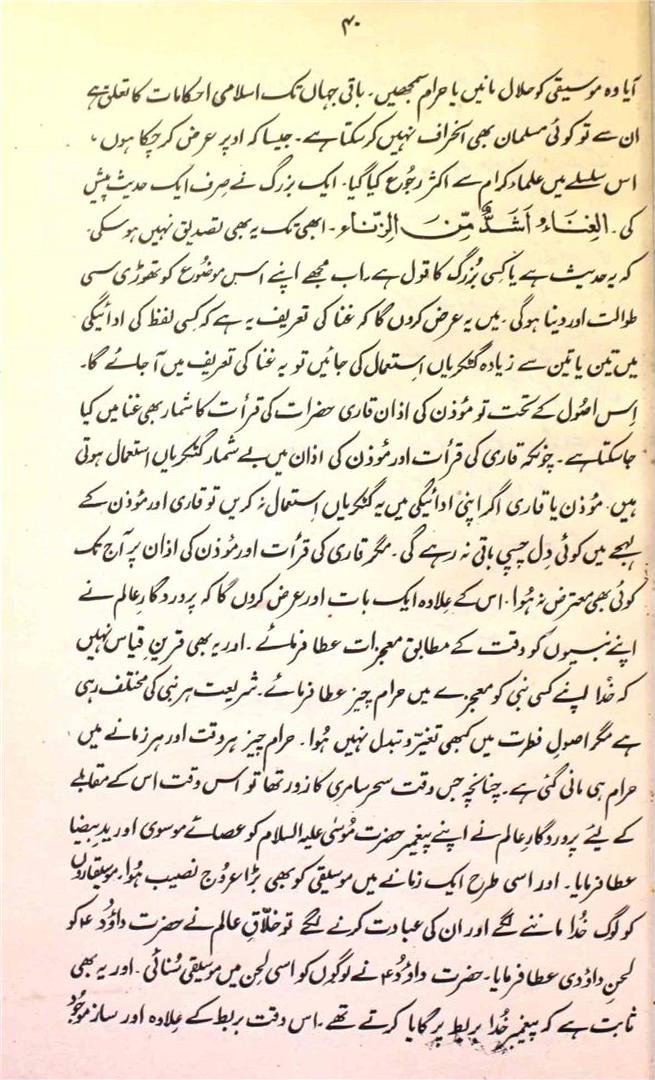 ۴۰
آیا وہ موسیقی کو حلال مانیں یا حرام سمجھیں۔ باقی جہاں تک اسلامی احکامات کا تعلق ہے
ان سے تو کوئی مسلمان بھی انحراف نہیں کر سکتا ہے۔ جیسا کہ اوپر عرض کر چکا ہوں،
اس سلسلے میں علماء کرام سے اکثر رجُوع کیا گیا۔ ایک بزرگ نے صِرف ایک حدیث پیش
کی۔ الغِنَاءُ اَشَدُّ مِّنَ الزِّنَاء۔ ابھی تک یہ بھی تصدیق نہیں ہو سکی۔
کہ یہ حدیث ہے یا کسِی بُزرگ کا قول ہے۔ اب مجھے اپنے اس موضوُع کو تھوڑی سی
طوالت اور دینا ہو گی۔ میں یہ عرض کروں گا کہ غنا کی تعریف یہ ہے کہ کسِی لفظ کی ادائیگی
میں تین یا تین سے زیادہ گٹکریاں اِستعمال کی جائیں تو یہ غنا کی تعریف میں آ جائے گا۔
اِس اصُول کے تحت تو مؤذن کی اذان قاری حضرات کی قرأت کا شمار بھی غنا میں کیا
جا سکتا ہے۔ چونکہ قاری کی قرأت اور مؤذن کی اذان میں بے شمار گٹکریاں استعمال ہوتی
ہیں۔ مؤذن یا قاری اگر اپنی ادائیگی میں یہ گٹکریاں اِستعمال نہ کریں تو قاری اور مؤذن کے
لہجے میں کوئی دِل چسپی باقی نہ رہے گی۔ مگر قاری کی قرأت اور مؤذن کی اذان پر آج تک
کوئی بھی معترض نہ ہُوا۔ اس کے علاوہ ایک بات اور عرض کروں گا کہ پروردگارِ عالم نے
اپنے نبیوں کو وقت کے مطابق معجزات عطا فرمائے۔ اور یہ بھی قرینِ قیاس نہیں
کہ خُدا اپنے کسی نبی کو معجزے میں حرام چیز عطا فرمائے۔ شریعت ہر نبی کی مختلف رہی
ہے مگر اصولِ فطرت میں کبھی تغیّر و تبدل نہیں ہُوا۔ حرام چیز ہر وقت اور ہر زمانے میں
حرام ہی مانی گئی ہے۔ چنانچہ جس وقت سحرِ سامری کا زور تھا تو اس وقت اس کے مقابلے
کے لیئے پروردگارِ عالم نے اپنے پیغمبر حضرت مُوسٰی علیہ السلام کو عصائے موسوی اور یدِ بیضا
عطا فرمایا۔ اور اسی طرح ایک زمانے میں موسیقی کو بھی بڑا عروُج نصیب ہُوا۔ موسیقاروں
کو لوگ خُدا ماننے لگے اور ان کی عبادت کرنے لگے تو خلّاقِ عالم نے حضرت داؤدؑ کو
لحنِ داؤدی عطا فرمایا۔ حضرت داؤدؑ نے لوگوں کو اسی لحن میں موسیقی سُنائی۔ اور یہ بھی
ثابت ہے کہ پیغمبرِ خُدا بربط پر گایا کرتے تھے۔ اس وقت بربط کے عِلاوہ اور ساز موجُود